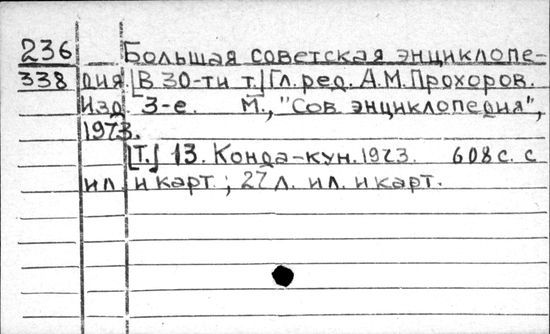 236 Большая советская энциклопе-
338 дия. [В 30-ти т.] Гл. ред. А.М. Прохоров.
Изд. 3-е. М., "Сов. энциклопедия",
1973.
[Т.] 13. Конда-кун. 1973. 608 с. с
ил. и карт.; 27 л. ил. и карт.